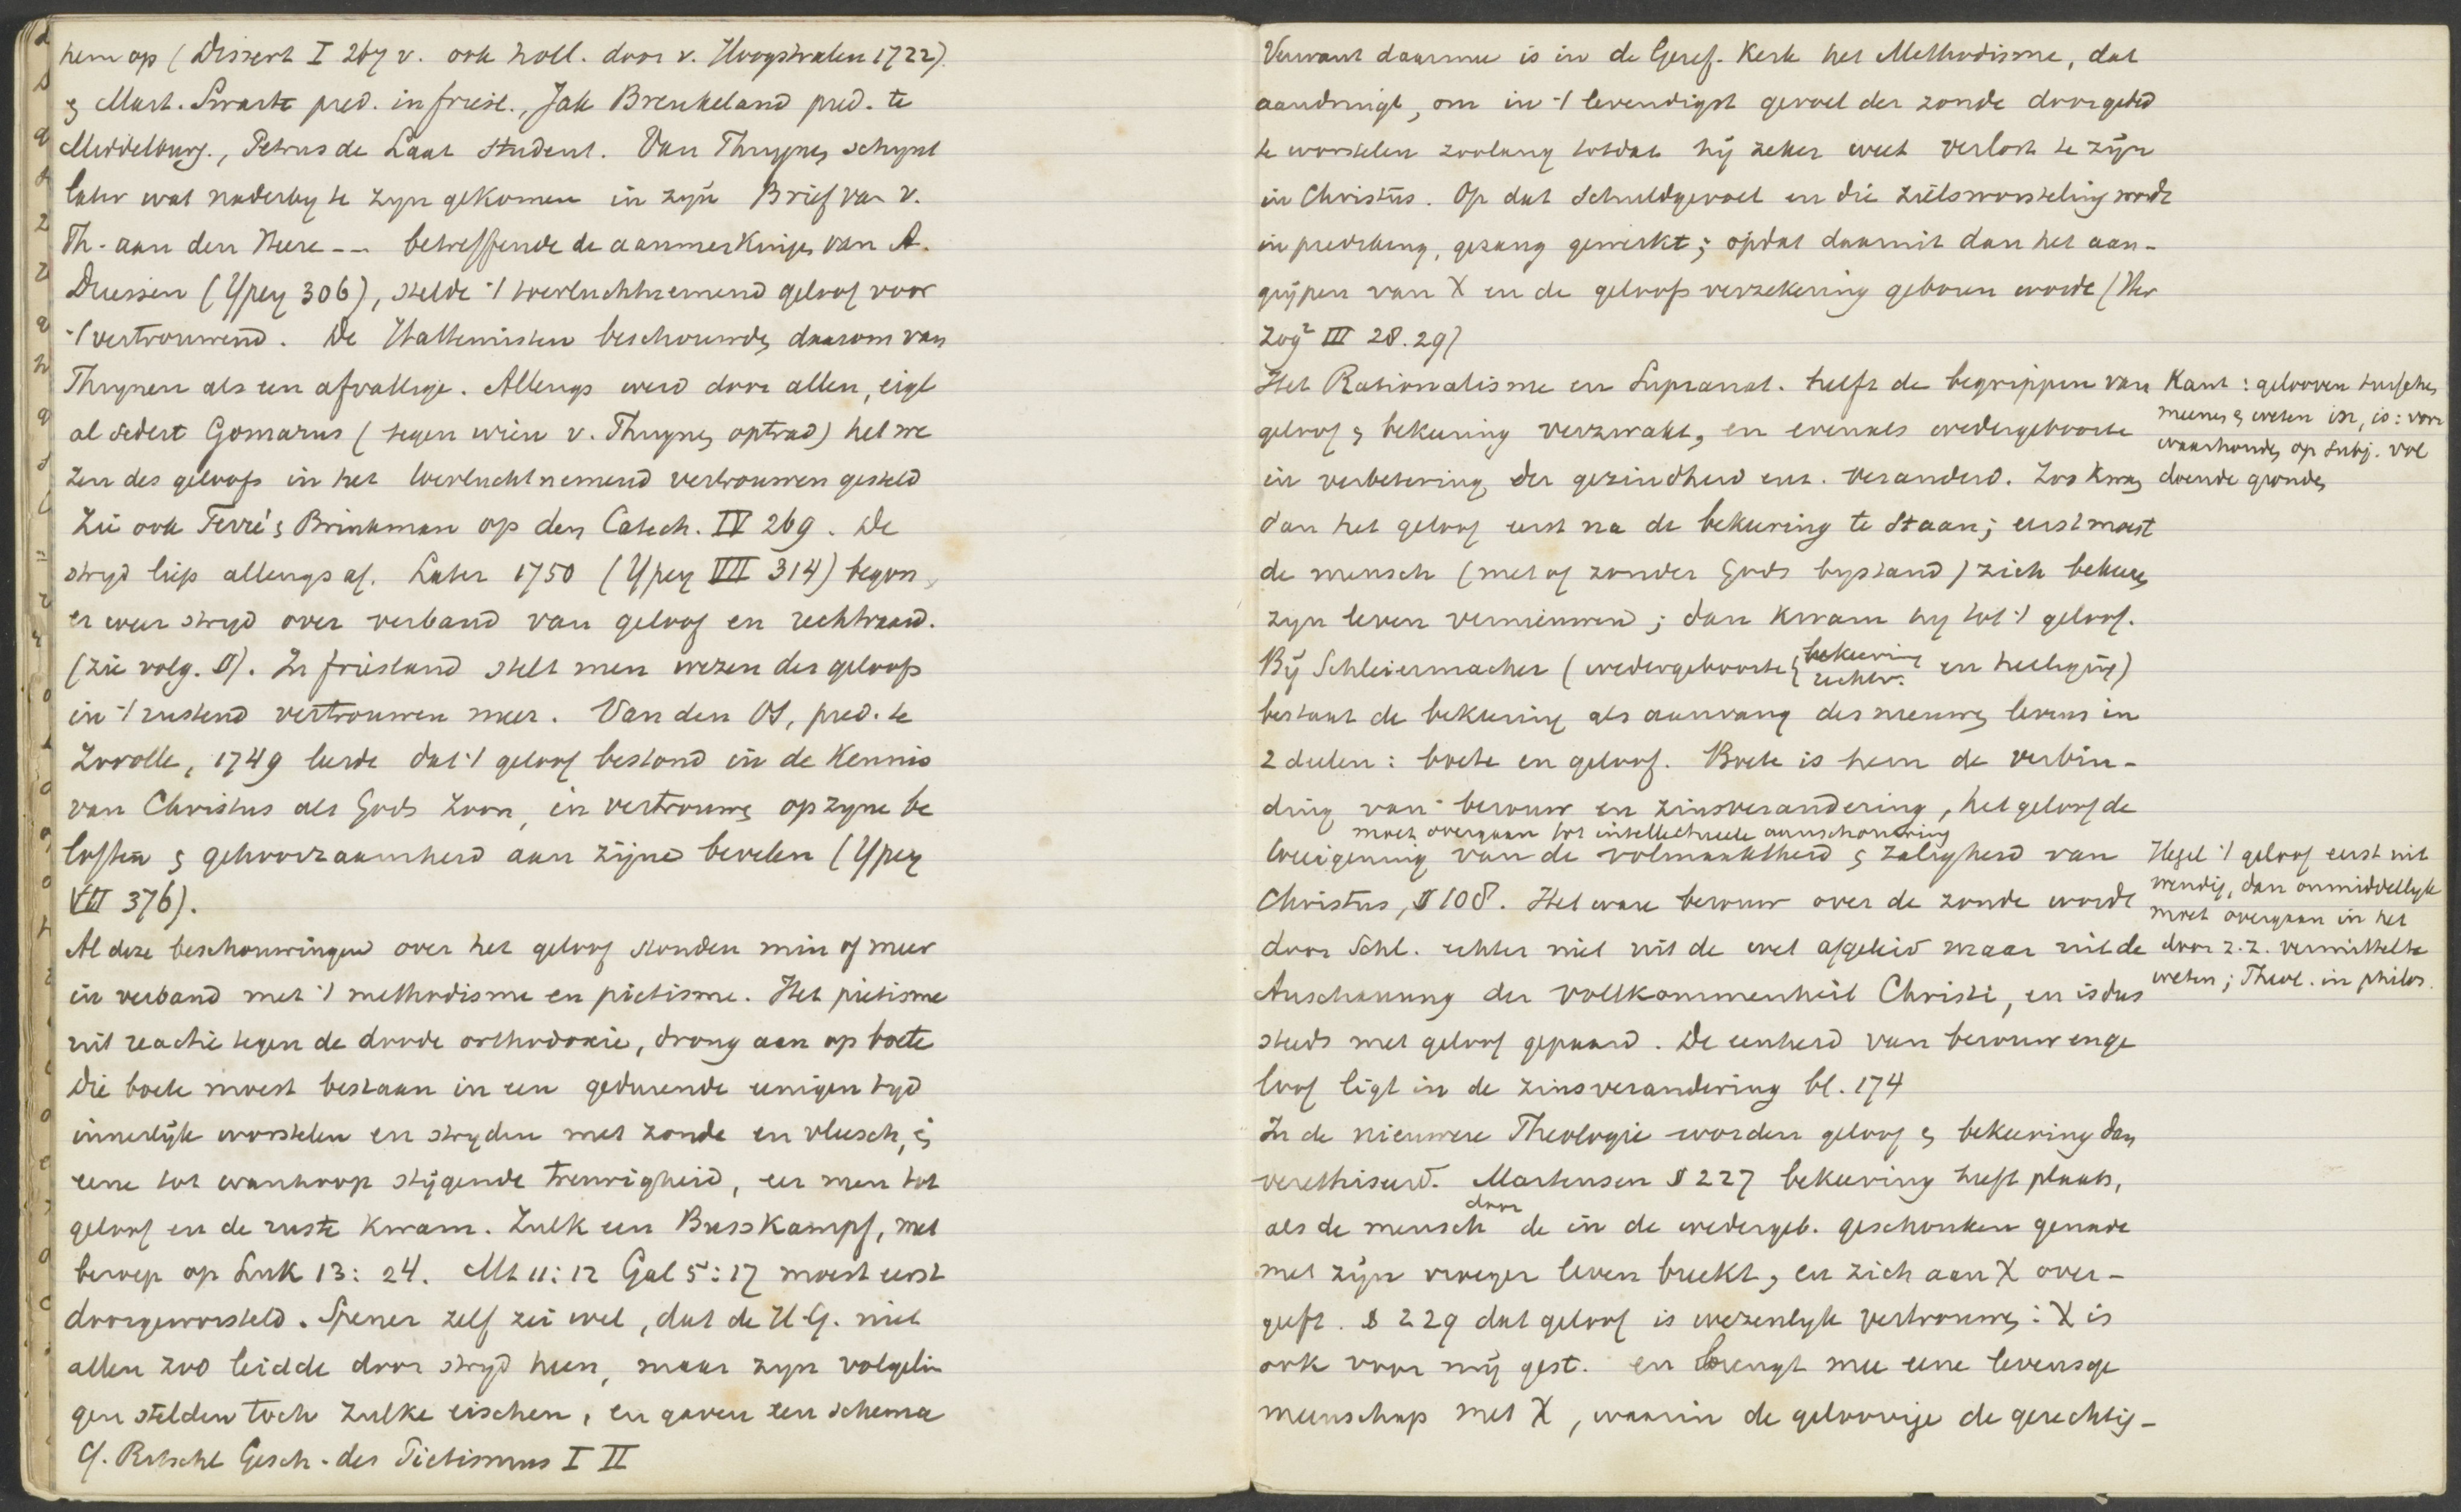 hem op (Dissert I 267 v. ook holl. door v. Hoogstraten 1722)
& Mart. Swarte pred. in friesl., Jak Breukeland pred. te
Middelburg., Petrus de Laat student. Van Thuynen schynt
later wat naderby te zyn gekomen in zyn Brief van v.
Th. aan den Heere -- betreffende de aanmerkingen van A.
Driessen (Ypey 306), stelde 't toevluchtnemend geloof voor
't vertrouwend. De Hattemisten beschouwden daarom van
Thuynen als een afvallige. Allengs werd door allen, eigl
al sedert Gomarus (tegen wien v. Thuynen optrad) het we
zen des geloofs in het toevluchtnemend vertrouwen gesteld
Zie ook Ferré & Brinkman op den Catech. IV 269. De
stryd liep allengs af. Later 1750 (Ypey VII 314) begon
er weer stryd over verband van geloof en rechtvaard.
(zie volg. §). In friesland stelt men wezen des geloofs
in 't rustend vertrouwen meer. Van den OS, pred. te
Zwolle, 1749 leerde dat 't geloof bestond in de Kennis
van Christus als Gods Zoon, in vertrouwen op zyne be
loften & gehoorzaamheid aan zijne bevelen (Ypey
VII 376).
Al deze beschouwingen over het geloof stonden min of meer
in verband met 't methodisme en pietisme. Het pietisme
uit reactie tegen de doode orthodoxie, drong aan op boete
die boete moest bestaan in een gedurende eenigen tyd
innerlijk worstelen en stryden met zonde en vleesch, in
eene tot wanhoop stijgende treurigheid, eer men tot
geloof en de ruste kwam. Zulk een Busskampf, met
beroep op Luk 13: 24. Mt 11:12 Gal 5:17 moest eerst
doorgeworsteld. Spener zelf zei wel, dat de H G. niet
allen zoo leidde door stryd heen, maar zyn volgelin
gen stelden toch zulke eischen, en gaven een schema
Cf. Ritschl Gesch. des Pietismus I II
Verwant daarmee is in de Geref. Kerk het Methodisme, dat
aandringt, om in 't levendigst gevoel der zonde door gebed
te worstelen zoolang totdat hij zeker weet verlost te zijn
in Christus. Op dat schuldgevoel en die zielsworsteling wordt
in prediking, gezang gewerkt; opdat daarmit dan het aan-
grijpen van X en de geloofsverzekering geboren worde (Her
zog² III 28.29)
Het Rationalisme en Supranat. heeft de begrippen van
geloof & bekeering verzwakt, en evenals wedergeboorte
in verbetering der gezindheid enz. veranderd. Zoo kwam
dan het geloof eerst na de bekeering te staan; eerst moest
de mensch (met of zonder Gods bystand) zich bekeeren
zyn leven vernieuwen; dan kwam hy tot 't geloof.
Bij Schleiermacher (wedergeboorte { bekeering rechtv. en heiliging)
bestaat de bekeering als aanvang des nieuwen levens in
2 deelen: boete en geloof. Boete is hem de verbin-
ding van berouw en zinsverandering, het geloof de
moet overgaan tot intellectueele aanschouwing
toeeigening van de volmaaktheid & zaligheid van
Christus, § 108. Het ware berouw over de zonde wordt
door Schl. echter niet uit de wet afgeleid maar uit de
Anschauung der Vollkommenheit Christi, en is dus
steeds met geloof gepaard. De eenheid van berouw en ge
loof ligt in de zinsverandering bl. 174
In de nieuwere Theologie worden geloof & bekeering dan
verethiseerd. Martensen § 227 bekeering heeft plaats,
als de mensch door de in de wedergeb. geschonken genade
met zijn vroeger leven breekt, en zich aan X over-
geeft. § 229 dat geloof is wezenlyk vertrouwen: X is
ook voor mij gest. en brengt mee eene levensge
meenschap met X, waarin de geloovige de gerechtig-
Kant: gelooven tusschen
meenen & weten in, is: voor
waarhouden op subj. vol
doende gronden
Hegel 't geloof eerst uit
wendig, dan onmiddellyk
moet overgaan in het
door z.z. vermittelte
weten; Theol. in philos.